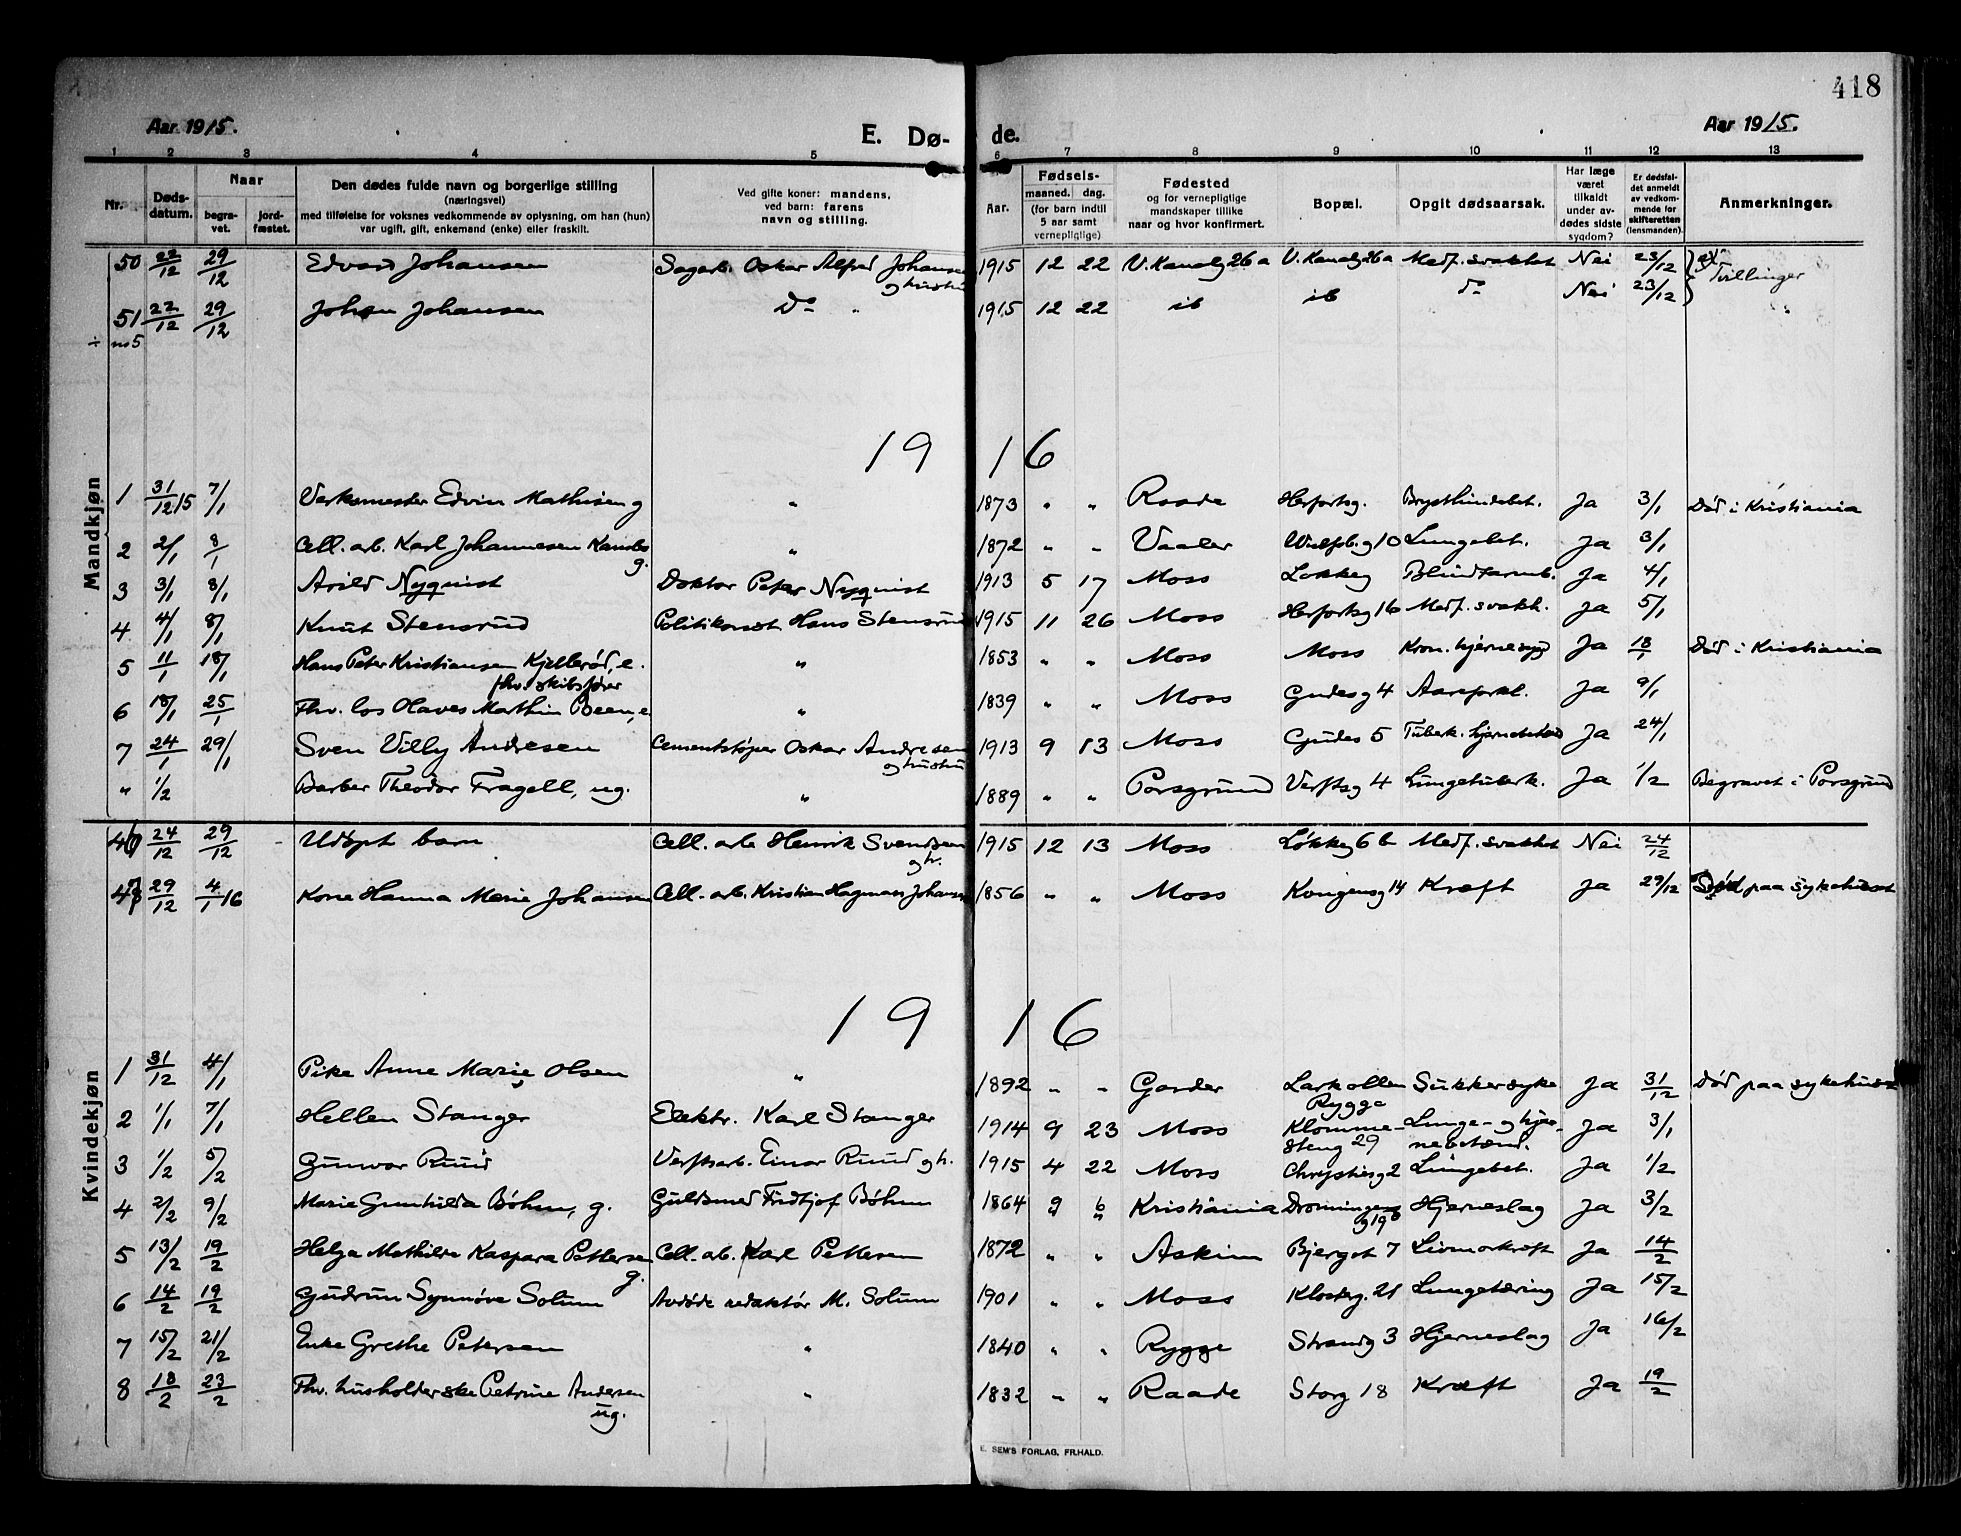 418
Aar 1915.
E. Dø-
de.
Aar 1915.
1 2 3 4 5 6 7 8 9 10 11 12 13
Nr. Døds-datum. Naar begra-vet. jord-fæstet. Den dødes fulde navn og borgerlige stilling (næringsvei) med tilføielse for voksnes vedkommende av oplysning, om han (hun) var ugift, gift, enkemand (enke) eller fraskilt. Ved gifte koner: mandens, ved barn: farens navn og stilling. Aar. Fødsels- maaned. dag. (for barn indtil 5 aar samt vernepligtige) Fødested og for vernepligtige mandskaper tillike naar og hvor konfirmert. Bopæl. Opgit dødsaarsak. Har læge været tilkaldt under av-dødes sidste sygdom? Er dødsfal-det anmeldt av vedkom-mende for skifteretten (lensmanden). Anmerkninger.
Mandkjøn
50 22/12 29/12 Edvard Johansen Sagarb. Oskar Alfred Johansen og hustru 1915 12 22 V. Kanalg 26 a V. Kanalg 26 a Medf. svakhet Nei 23/12 Tvillinger
51 22/12 29/12 Johan Johansen Do " 1915 12 22 ib ib do Nei 23/12 "
÷ no 5
1916
1 31/12 15 7/1 Verksmester Edvin Mathisen g " 1873 " " Raade Herfortsg. Brysthindebet. Ja 3/1 Død i Kristiania
2 2/1 8/1 Cell. arb. Karl Johannesen g. " 1872 " " Vaaler Wulfsb.g 10 Lungebet. Ja 3/1
3 3/1 8/1 Arild Nyquist Doktor Peter Nyquist 1913 5 17 Moss Løkkeg Blindtarmb. Ja 4/1
4 4/1 8/1 Knut Stensrud Politikonst Hans Stensrud 1915 11 26 Moss Herfortsg 16 Medf. svakh. Ja 5/1
5 11/1 18/1 Hans Peter Kristiansen Kjellerød, e. fhv. skibsfører " 1853 " " Moss Moss Kron. hjernesygd Ja 18/1 Død i Kristiania
6 18/1 25/1 Fhv. los Olaves Mathin Been, e. " 1839 " " Moss Gudes g 4 Aareforkl. Ja 9/1
7 24/1 29/1 Sven Villy Andresen Cementstøper Oskar Andresen og hustru 1913 9 13 Moss Gudes 5 Tuberk. Ja 24/1
" 1/2 Barber Theodor Fragell, ug. " 1889 " " Porsgrund Verftsg 4 Lungetuberk. Ja 1/2 Begravet i Porsgrund
Kvindekjøn
46 24/12 29/12 - Udøpt barn Cell. arb Henrik Svendsen og h. 1915 12 13 Moss Løkkeg 6 b Medf. svakhet Nei 24/12
47 29/12 4/1 16 Kone Hanna Marie Johansen Cell. arb. Kristian Hagman Johansen 1856 " " Moss Kongensg 14 Kræft Ja 29/12 Død paa sykehuset
1916
1 31/12 4/1 Pike Anne Marie Olsen " 1892 " " Garder Larkollen Rygge Sukkersyke Ja 31/12 Død paa sykehuset
2 1/1 7/1 Hellen Stanger Elektr. Karl Stanger 1914 9 23 Moss Klomme-steng 29 Lunge- og hjer-nebetænd. Ja 3/1
3 1/2 5/2 Gunvor Ruud Verftsarb. Einar Ruud og h. 1915 4 22 Moss Chrystiesg 2 Lungebet. Ja 1/2
4 2/2 9/2 Marie Gunhilda Bøhm, g. Guldsmed Fridtjof Bøhm 1864 9 6 Kristiania Dronningens g 19 b Hjerneslag Ja 3/2
5 13/2 19/2 Helga Mathilde Kaspara Pettersen g. Cell. arb. Karl Pettersen 1872 " " Askim Bjerget 7 Livmorkræft Ja 14/2
6 14/2 19/2 Gudrun Synnøve Solum Avdøde redaktør M. Solum 1901 " " Moss Klosterg. 21 Lungetæring Ja 15/2
7 15/2 21/2 Enke Grethe Petersen " 1840 " " Rygge Strandg 3 Hjerneslag Ja 16/2
8 18/2 23/2 Fhv. husholderske Petrine Andersen ug. " 1832 " " Raade Storg 18 Kræft Ja 19/2
E. SEM'S FORLAG, FR.HALD.